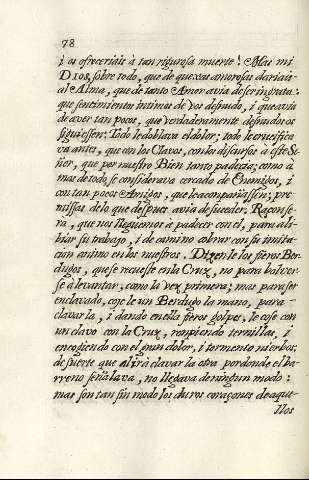 78
i os ofreceriais à tan rigurosa muerte! Mas mi
DIOS, sobre todo, que de quexas amorosas dariais
al Alma, que de tanto Amor avia de ser ingrata:
que sentimientos intimos de vos desnudo, i que avia
de aver tan pocos, que verdaderamente desnudos os
siguiessen: Todo le doblava el dolor; todo le crucifica
va antes, que con los Clavos, con los discursos à este Se-
ñor, que por nuestro Bien tanto padecia; como à
mas de todo, se considerava cercado de Enemigos, i
con tan pocos Amigos, que le acompañassen; pre-
missas de lo que despues avia de suceder. Raçon se-
ra, que nos lleguemos à padecer con el, para ali-
biar su trabajo, i de camino cobrar con su imita-
cion animo en los nuestros. Dizenle los fieros Ber-
dugos, que se recueste en la Cruz, no para bolver-
se à levantar, como la vez primera; mas para ser
enclavado, coje le un Berdugo la mano, para
clavarla, i dando en ella fieros golpes, le cose con
un clavo con la Cruz, rompiendo ternillas, i
encogiendo con el gran dolor, i tormento nierbos;
de suerte que al ir à clavar la otra por donde el ba-
rreno señalava, no llegava de ningun modo:
mas son tan sin modo los duros coraçones de aque-
llos